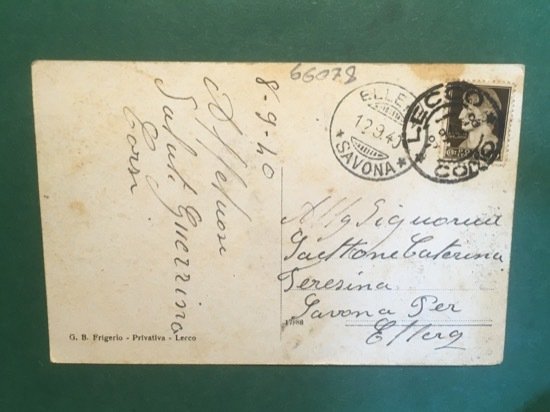 66078
8-9-40
Affetuosi
Saluti Guerrina
Corsi
ELLE
12.9.40
* SAVONA *
LECCO
COMO
Alla Signorina
Caterina
Teresina
Savona Per
Ellera
G. B. Frigerio - Privativa - Lecco